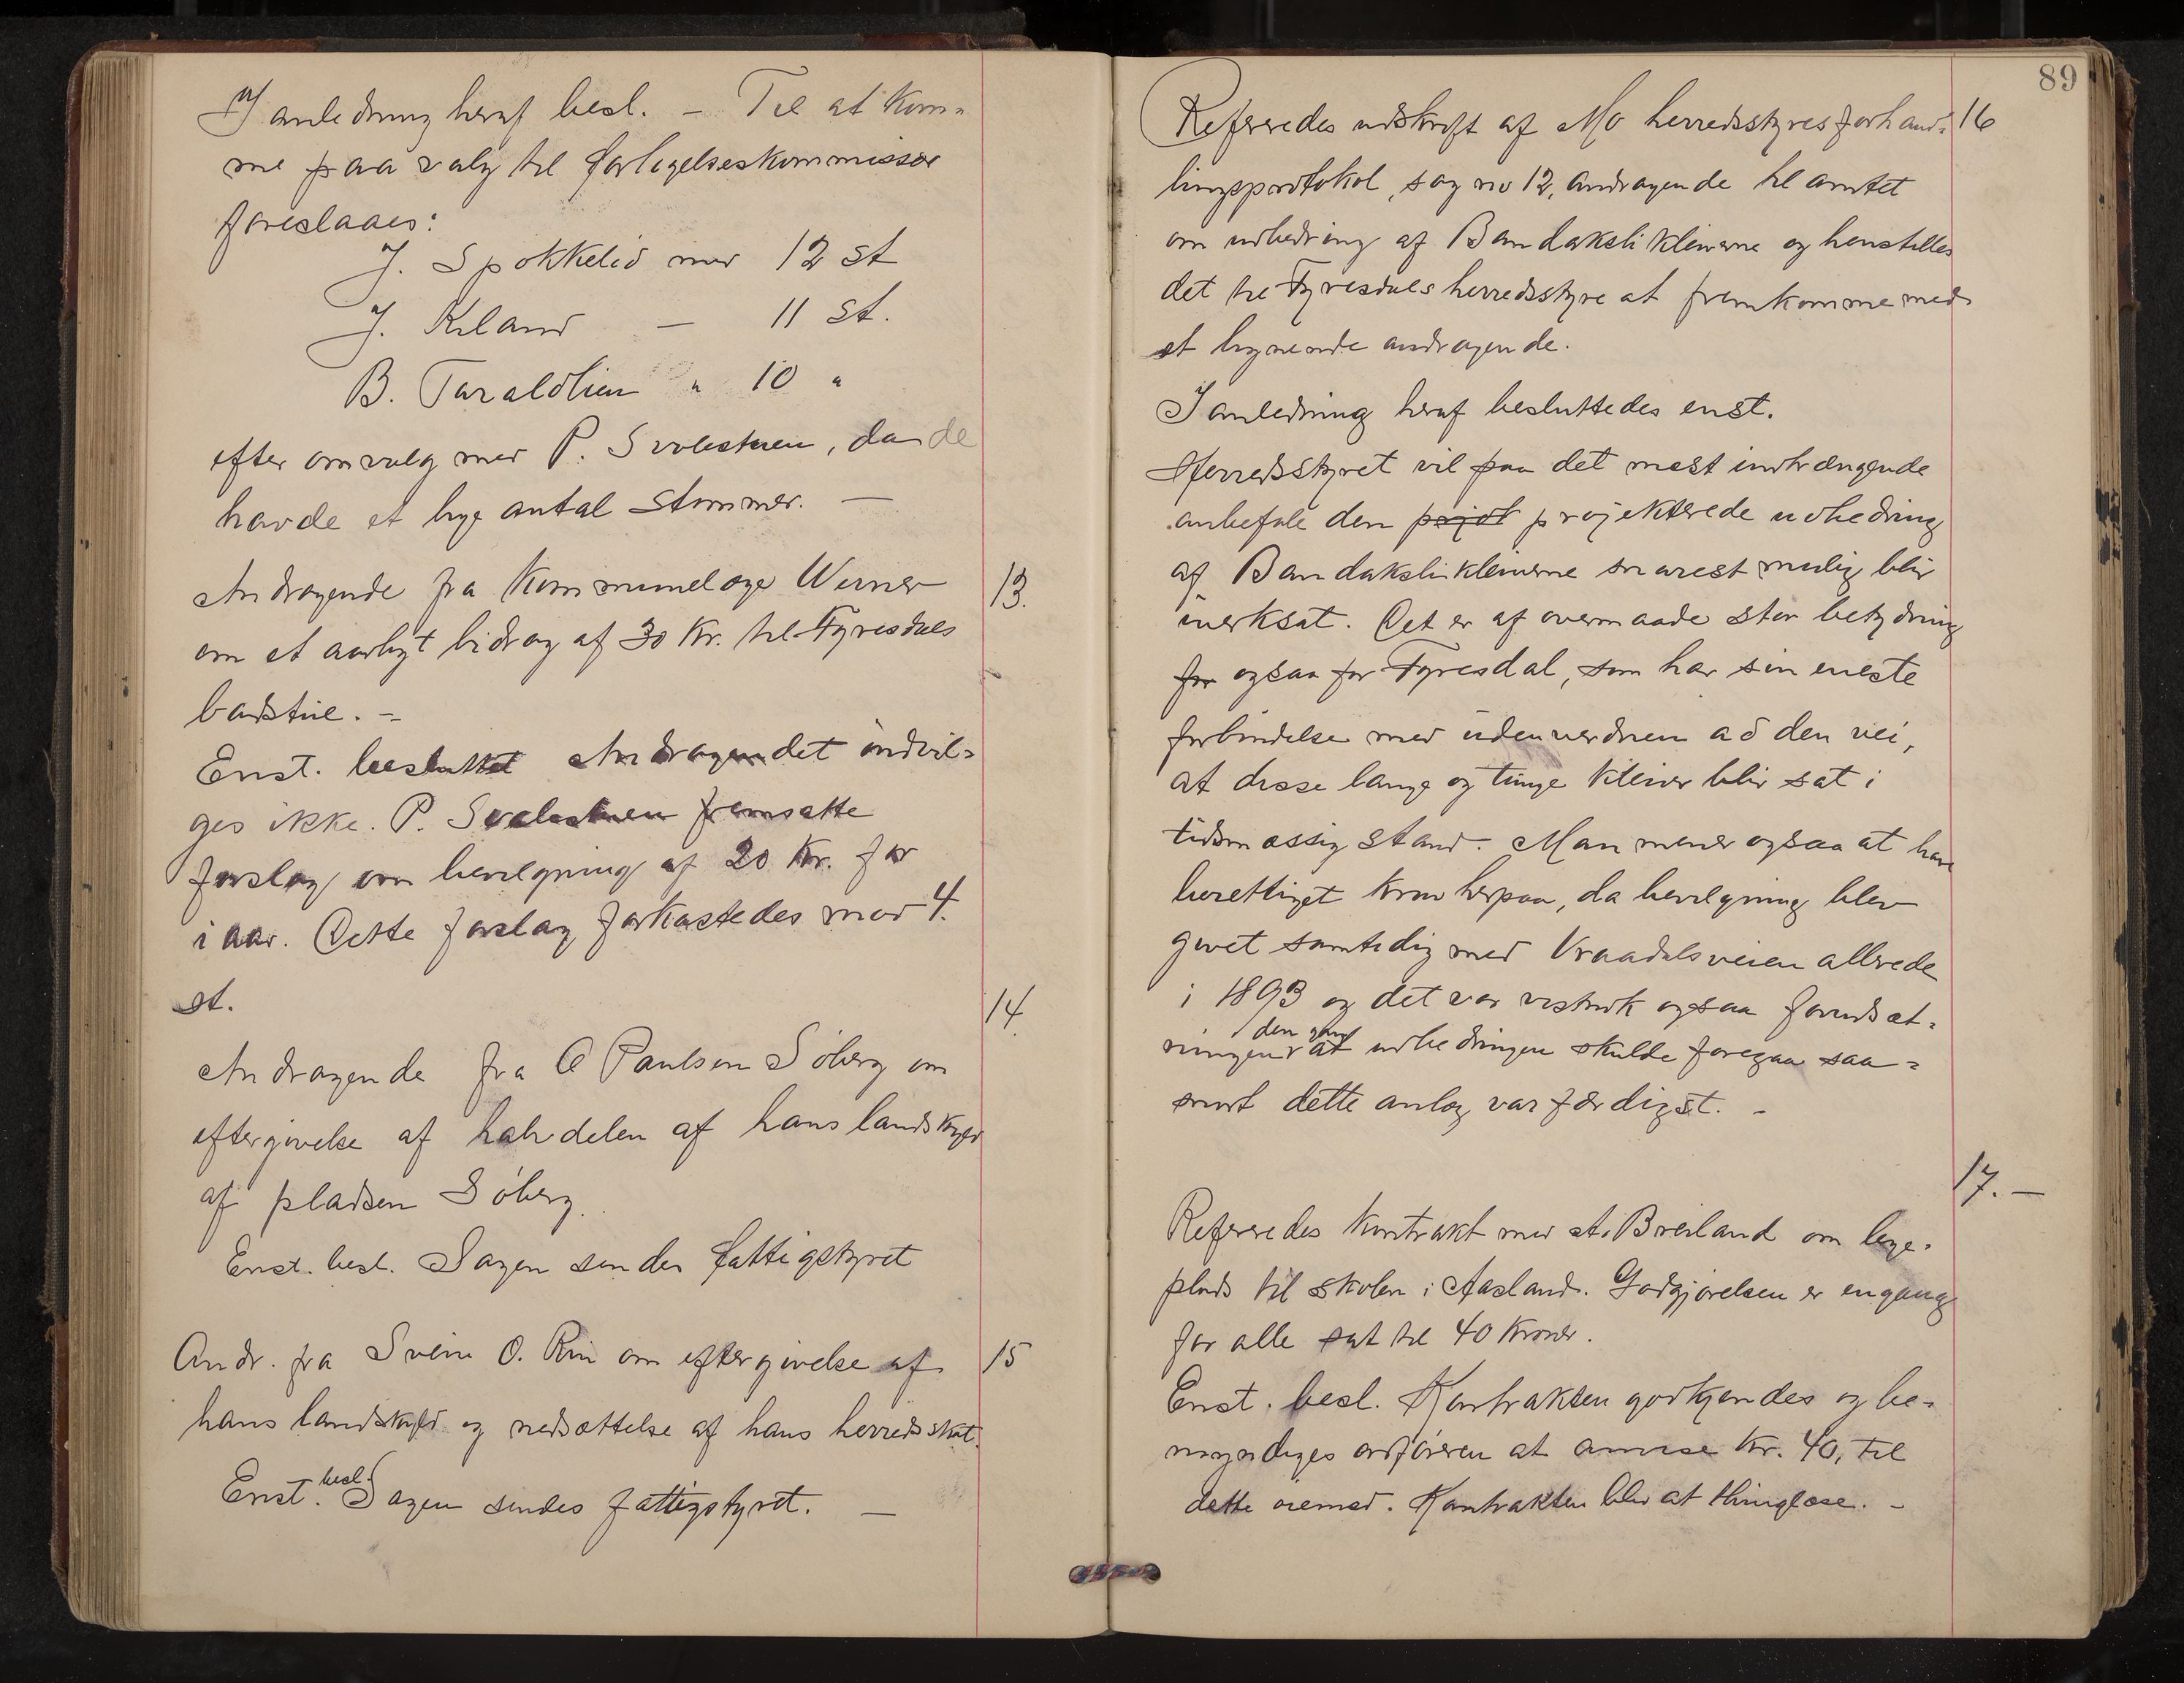 I anledning heraf besl. – Til at kom=
me paa valg til forligelseskommissær
foreslaaes:
J. Spokkelid med 12 st
J. Kiland — 11 st.
B. Taraldlien " 10 "
efter omvalg med P. Svolestuen, da de
havde et lige antal stemmer. —
13.
Andragende fra Kommunelæge Werner
om et aarligt bidrag af 30 Kr. til Fyresdals
badstue. –
Enst. besluttet Andragendet indvil=
ges ikke. P. Svalestuen fremsatte
forslag om bevilgning af 20 Kr. for
i aar. Dette forslag forkastedes mod 4.
st.
14.
Andragende fra O Paulsen Söberg om
eftergivelse af halvdelen af hans landskyld
af pladsen Söberg.
Enst. besl. Sagen sendes fattigstyret
15
Andr. fra Svein O. Rui om eftergivelse af
hans landskyld og nedsættelse af hans herredsskat.
Enst. besl. Sagen sendes fattigstyret. —
89
16
Refereredes udskrift af Mo herredsstyres forhand=
lingsprotokol, sag no 12, andragende til amtet
om udbedring af Bandaksli kleivene og henstilles
det til Fyresdals herredsstyre at fremkomme med
et lignende andragende.
I anledning heraf besluttedes enst.
Herredsstyret vil paa det mest indtrængende
anbefale den projekterede udbedring
af Bandakslikleivene snarest mulig blir
iverksat. Det er af overmaade stor betydning
for ogsaa for Fyresdal, som har sin eneste
forbindelse med udenverdnen ad den vei,
at disse lange og tunge kleiver blir sat i
tidsmæssig stand. Man mener ogsaa at have
berettiget krav herpaa, da bevilgning blev
givet samtidig med Vraadalsveien allerede
i 1893 og det var vistnok ogsaa forudsæt=
ningen den gang at udbedringen skulde foregaa saa=
snart dette anlæg var færdigst. –
17. —
Refereredes kontrakt med A. Breiland om lege=
plads til skolen i Aasland. Godgjørelsen er engang
for alle sat til 40 kroner.
Enst. besl. Kontrakten godkjendes og be=
myndiges ordføreren at anvise kr. 40, til
dette øiemed. Kontrakten blir at thinglæse. –